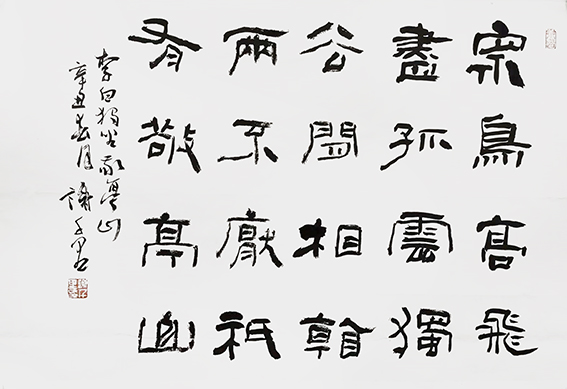 眾鳥高飛
盡孤雲獨
去閒相看
兩不厭祇
有敬亭山
李白獨坐敬亭山
辛丑春月